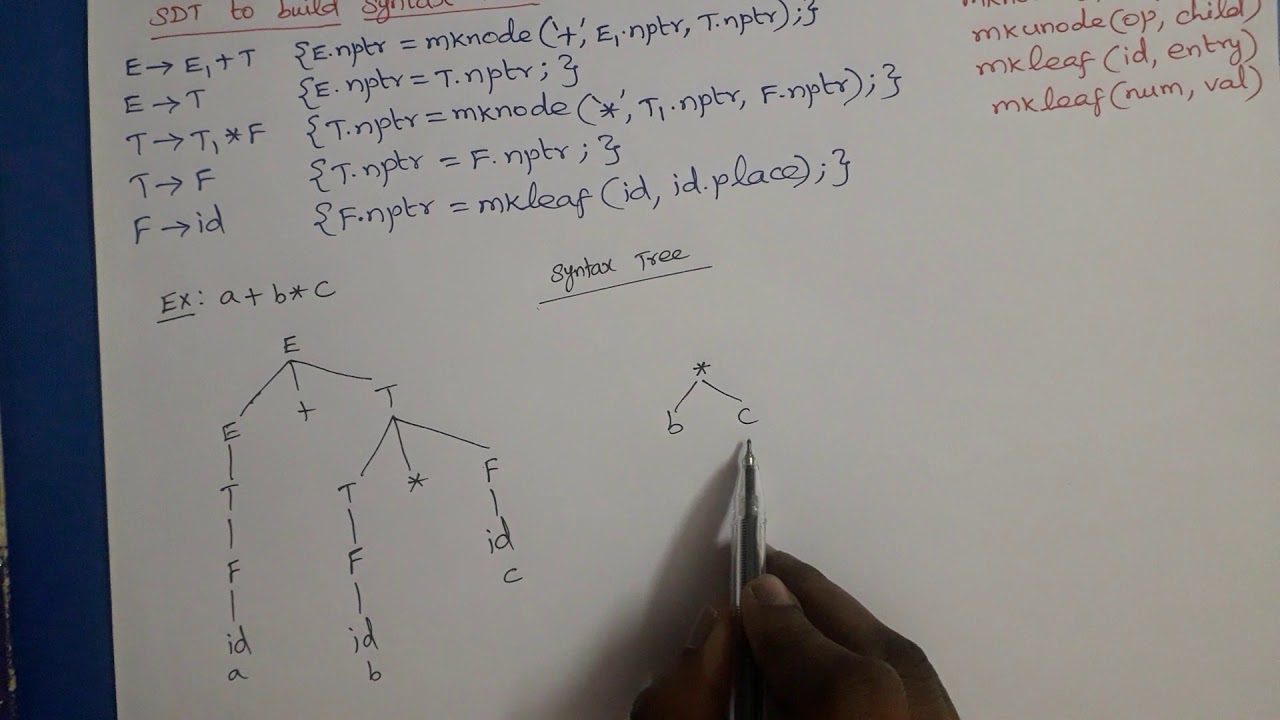 SDT to build Syntax
E → E₁ + T {E.nptr = mknode ('+', E₁.nptr, T.nptr);}
E → T {E.nptr = T.nptr;}
T → T₁ * F {T.nptr = mknode ('*', T₁.nptr, F.nptr);}
T → F {T.nptr = F.nptr;}
F → id {F.nptr = mkleaf (id, id.place);}
mkunode(op, child)
mkleaf (id, entry)
mkleaf(num, val)
Syntax Tree
Ex: a + b * c
E
E + T
T T * F
F F id
id id c
a b
*
b c